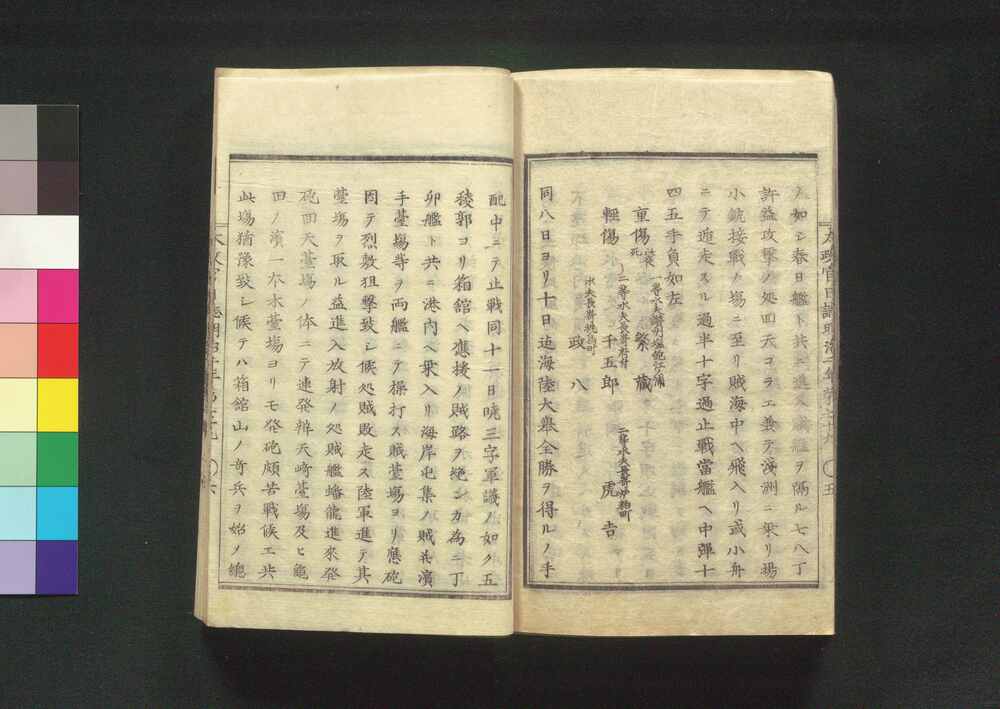 丸如シ春日艦ト共ニ進入賊艦ヲ隔ル七八丁
許益攻撃ノ処回天コラエ兼テ浅洲ニ乗リ揚
小銃接戦ノ場ニ至リ賊海中ヘ飛入リ或小舟
ニテ逃走スル過半十字過止戦當艦ヘ中弾十
四五手負如左
重傷 死 一等水夫 祭藏 二等水夫長嵜 虎吉
軽傷 二等水夫長嵜 千五郎
水夫長嵜 政八
同八日ヨリ十日迠海陸大挙全勝ヲ得ルノ手
配中ニテ止戦同十一日暁三字軍議ノ如ク五
稜郭ヨリ箱館ヘ應援ノ賊路ヲ絶ンカ為ニ丁
卯艦ト共ニ港内ヘ乗入リ海岸屯集ノ賊兵濱
手臺場等ヲ両艦ニテ操打ス賊臺場ヨリ應砲
因テ烈敷狙撃致シ候処賊敗走ス陸軍進テ其
臺場ヲ取ル益進入放射ノ処賊艦蟠龍進來発
砲回天臺場ノ体ニテ連発辨天﨑臺場及ヒ亀
田ノ濱一本木臺場ヨリモ発砲頗苦戦候エ共
此場猶豫致シ候テハ箱館山ノ奇兵ヲ始メ總
太政官日誌明治二年 五
太政官日誌明治二年 六